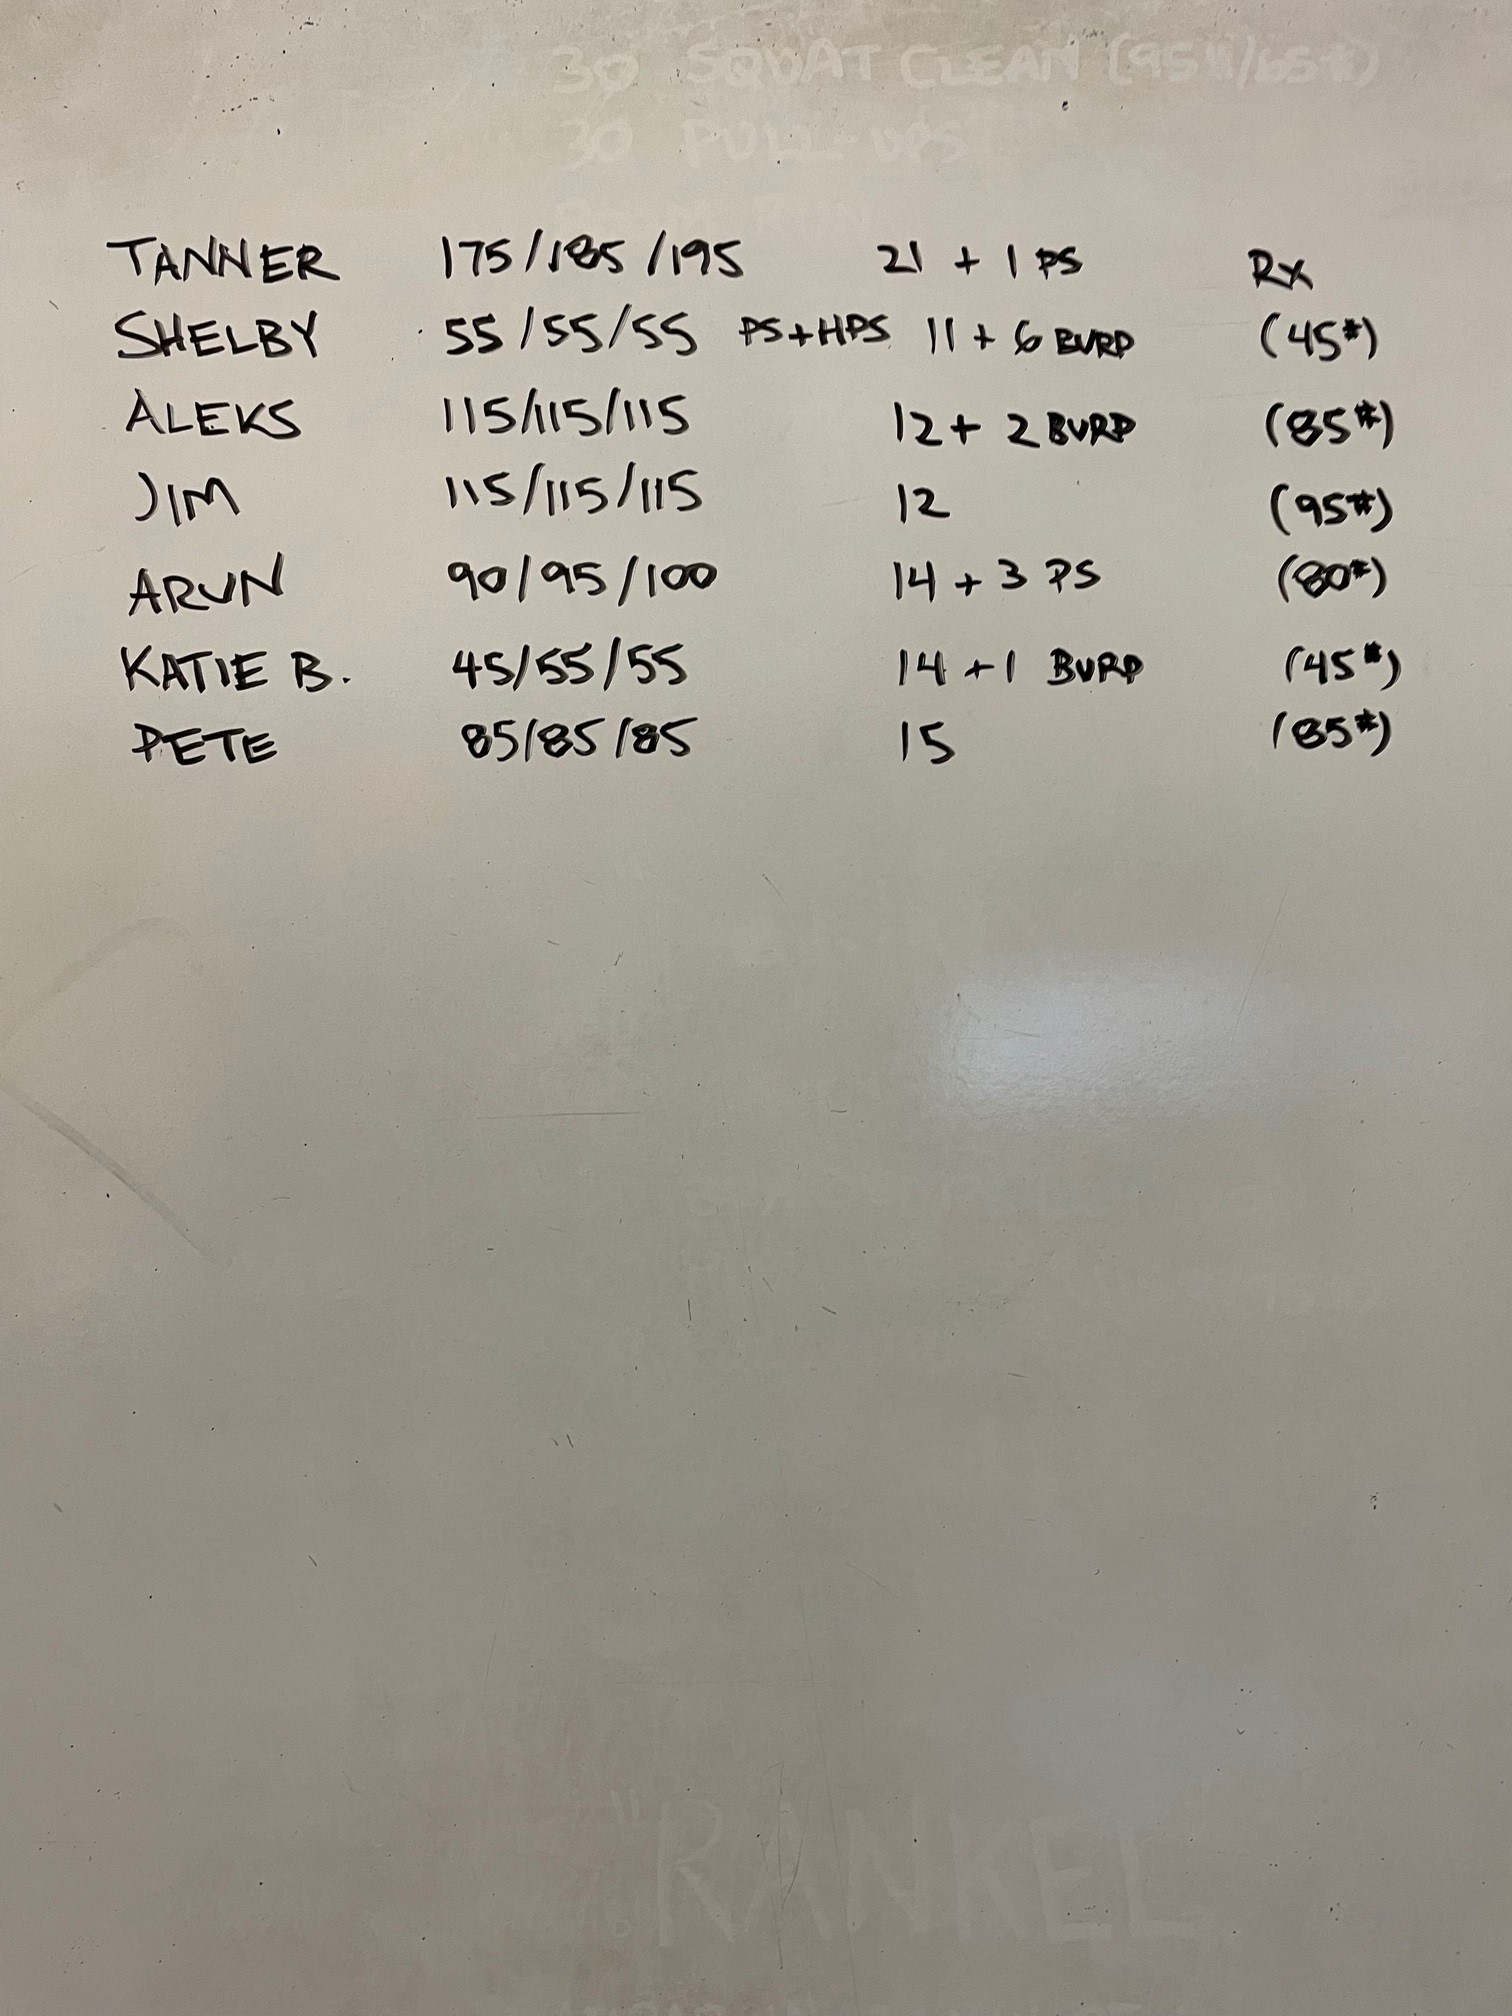 30 SQUAT CLEAN (95#/65#)
30 PULL-UPS
TANNER 175/185/195 21 + 1 PS Rx
SHELBY 55/55/55 PS+HPS 11 + 6 BURP (45#)
ALEKS 115/115/115 12 + 2 BURP (85#)
JIM 115/115/115 12 (95#)
ARUN 90/95/100 14 + 3 PS (80#)
KATIE B. 45/55/55 14 + 1 BURP (45#)
PETE 85/85/85 15 (85#)
"RANKEL"